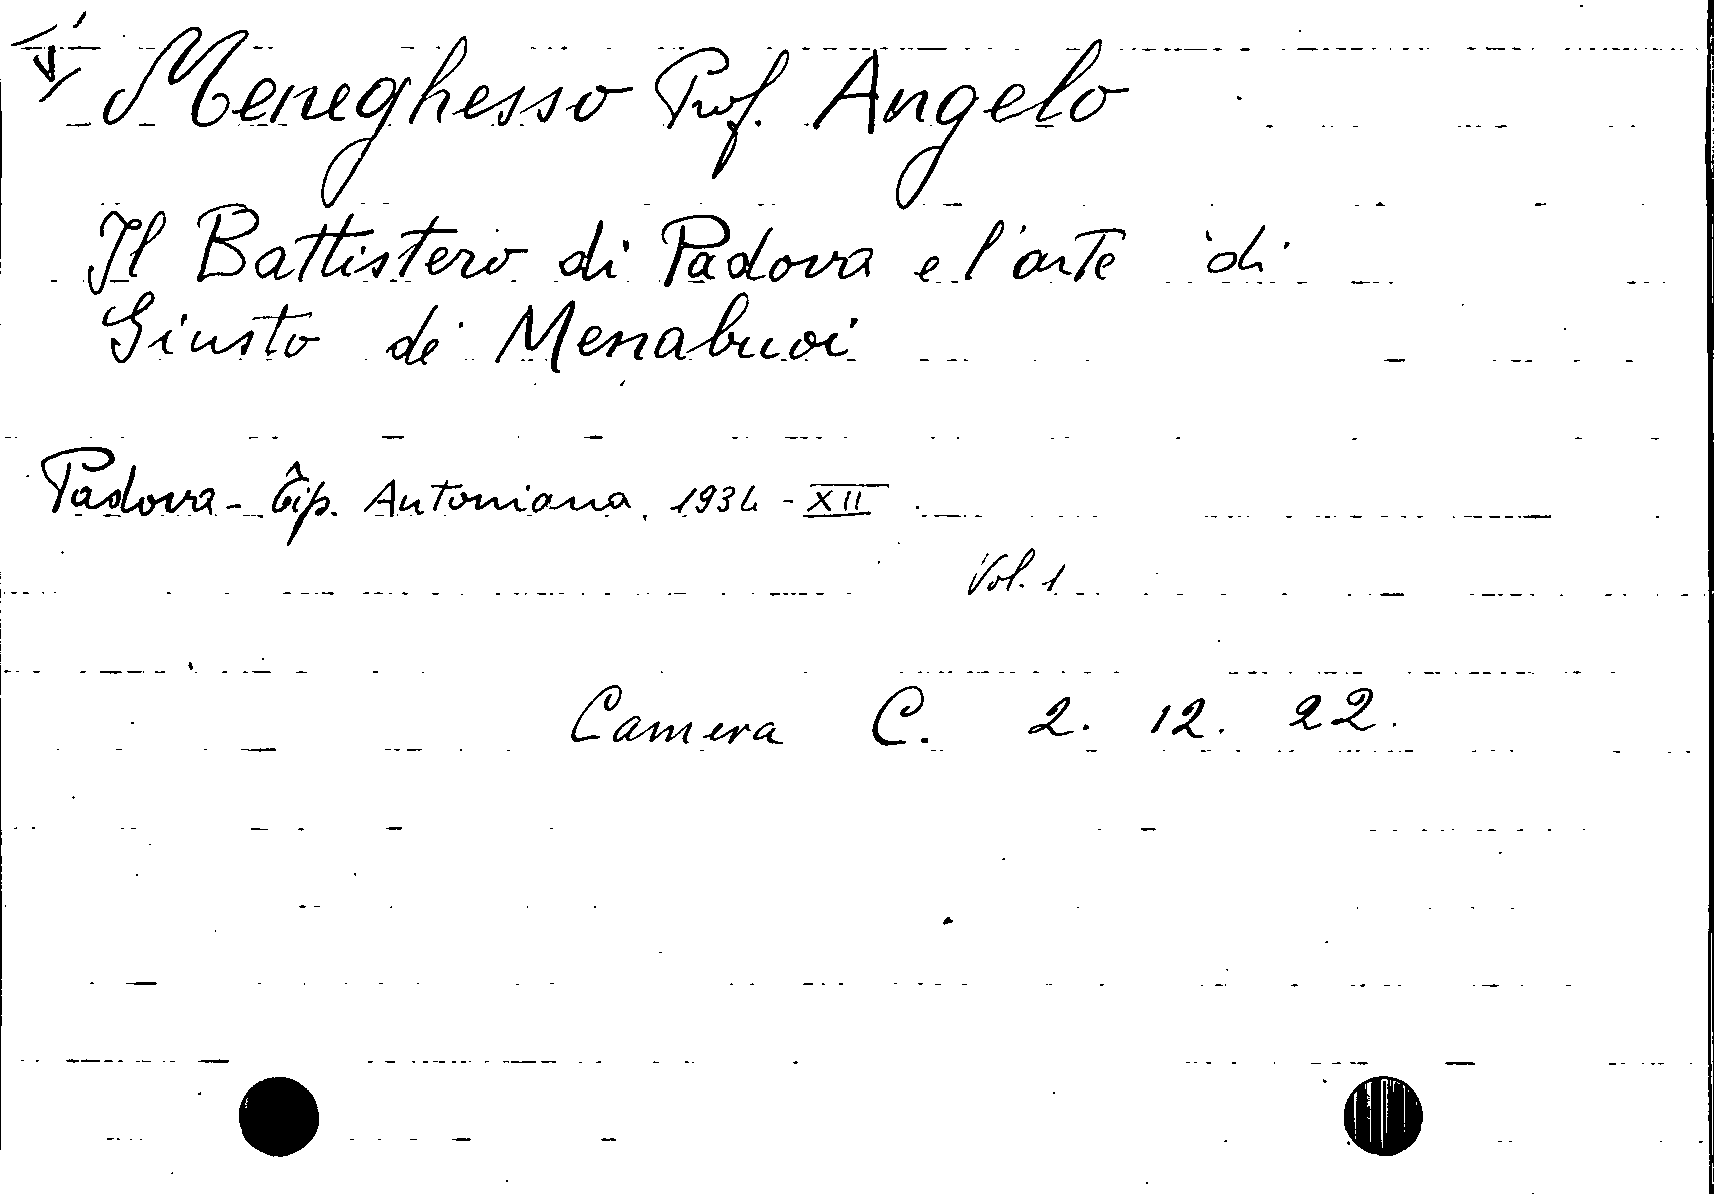 Meneghesso Prof. Angelo
Il Battistero di Padova e l'arte di
Giusto de' Menabuoi
Padova - Tip. Antoniana, 1934 - XII
Vol. 1
Camera C. 2. 12. 22.